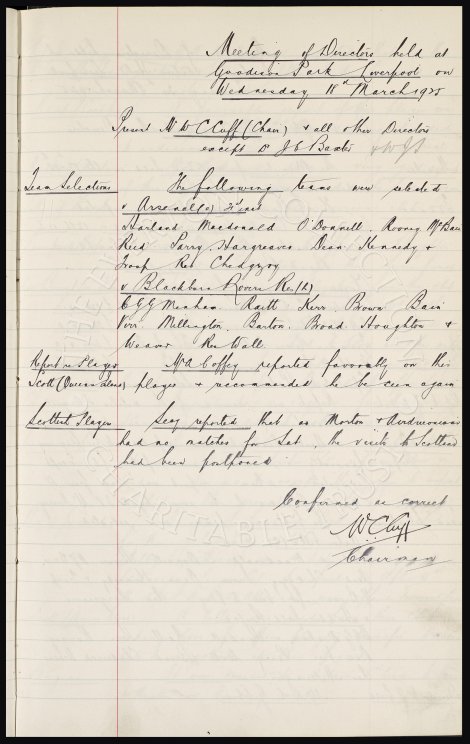 Meeting of Directors held at
Goodison Park Liverpool on
Wednesday 18th March 1925
Present Mr W C Cuff (Chair) & all other Directors
except Dr J E Baxter
Team Selections The following teams were selected
v Arsenal (a) 1st Team
Harland Macdonald O'Donnell. Rooney McBain
Reid Parry Hargreaves Dean Kennedy &
Troup Res Chedgzoy
v Blackburn Rovers Res (h)
E G G Menham. Raitt Kerr. Brown Bain
Virr. Millington. Barton. Broad. Houghton &
Weaver Res Wall
Report re Player Mr A Coffey reported favourably on this
Scott (Queens Island) player & recommended he be seen again
Scottish Players Secy reported that as Morton & Airdrieonians
had no matches for Sat, the visit to Scotland
had been postponed
Confirmed as correct
W C Cuff
Chairman
CHARITABLE